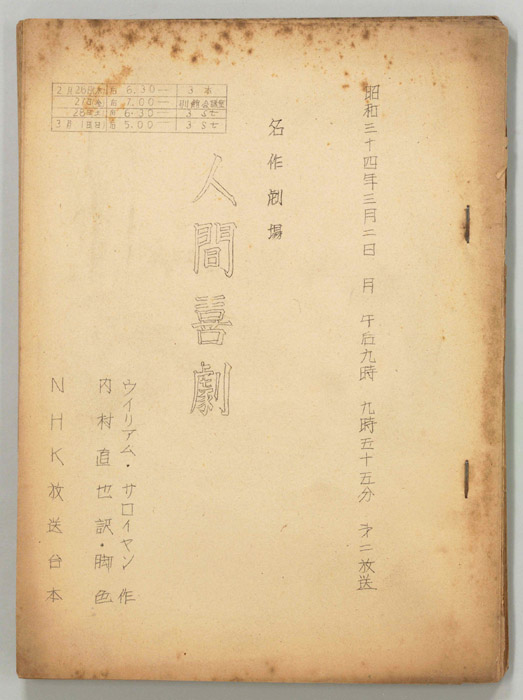 昭和三十四年三月二日 月 午后九時 九時五十五分 才二放送
名作劇場
人間喜劇
ウイリアム・サロイヤン作
内村直也訳・脚色
NHK放送台本
2月26日(木)后 6.30— 3本
27日(金)后 7.00—
28日(土)后 6.30— 3 St
3月1日(日)后 5.00— 3 St